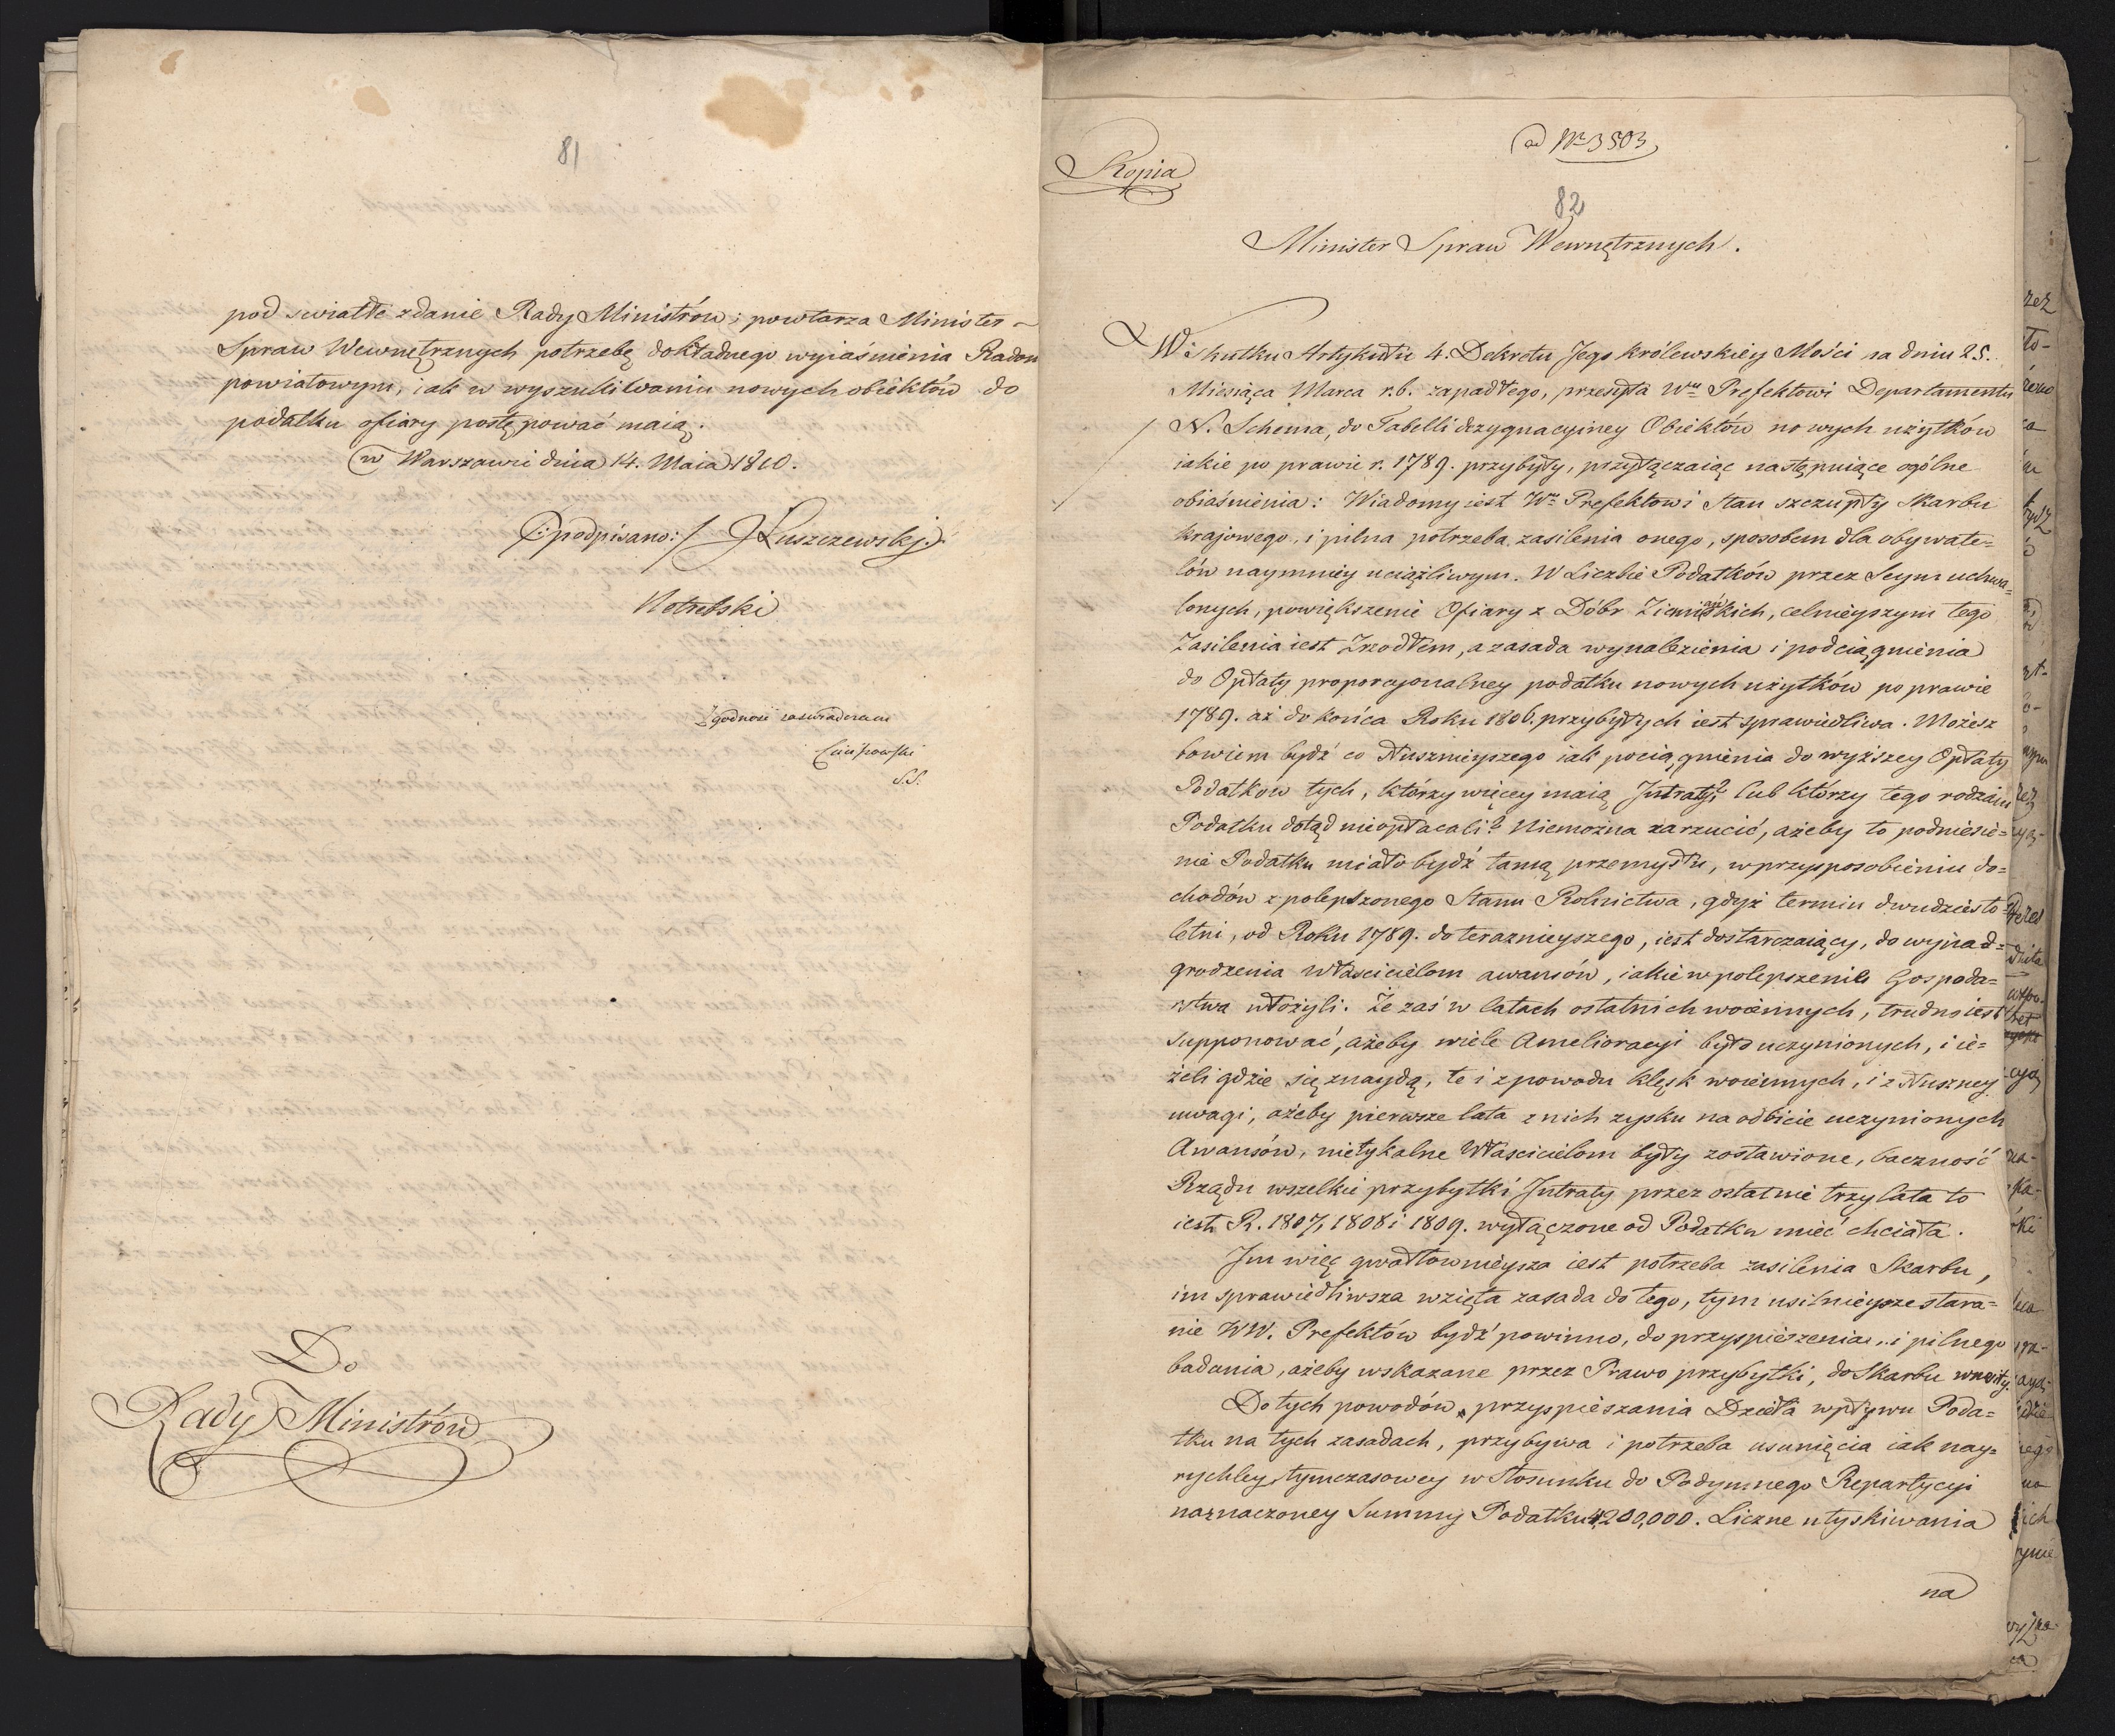 81
pod swiatłe zdanie Rady Ministrów; powtarza Minister
Spraw Wewnętrznych potrzebę dokładnego wyiaśnienia Radom
powiatowym, iak w wyszukiwaniu nowych obiektów do
podatku ofiary postępować maią.
w Warszawie dnia 14. Maia 1810.
(:podpisano:/ J Łuszczewski:)
Notrebski
Zgodność zaswiadczam
S.S.
Do
Rady Ministrów
ad Nr 3503
Kopia
82
Minister Spraw Wewnętrznych.
W Skutku Artykułu 4. Dekretu Jego Królewskiey Mości na dniu 25.
Miesiąca Marca r.b. zapadłego, przesyła Wu Prefektowi Departamentu
N. Schema, do Tabelli dezygnacyiney Obiektów nowych użytków
iakie po prawie r. 1789. przybyły, przyłączaiąc następuiące ogólne
obiaśnienia: Wiadomy iest Wu Prefektowi Stan szczupły Skarbu
krajowego, i pilna potrzeba zasilenia onego, sposobem dla obywate=
lów naymniey uciążliwym. W Liczbie Podatków przez Seym uchwa=
lonych, powiększenie Ofiary z Dóbr Ziemskich, celnieyszym tego
Zasilenia iest Zrzodłem, a zasada wynalezienia i podciągnienia
do Opłaty proporcyonalney podatku nowych użytków po prawie
1789. aż do końca Roku 1806. przybyłych iest sprawiedliwa. Możesz
bowiem bydź co słusznieyszego iak pociągnienia do wyższey Opłaty
Podatkow tych, którzy więcey maią Intraty? lub którzy tego rodzaiu
Podatku dotąd nieopłacali? Niemożna zarzucić, ażeby to podniesie=
nie Podatku miało bydź tamą przemysłu, w przysposobieniu do=
chodów z polepszonego Stanu Rolnictwa, gdyż termin dwudziesto=
letni, od Roku 1789. do teraznieyszego, iest dostarczaiący, do wynad=
grodzenia Własciciélom awansów, iakie w polepszenie Gospoda=
rstwa włożyli. Że zaś w latach ostatnich woiennych, trudno iest
supponować, ażeby wiele Amelioracyi było uczynionych, i ie=
żeli gdzie się znaydą, te i z powodu klęsk woiennych, i z słuszney
uwagi, ażeby pierwsze lata z nich zysku na odbicie uczynionych
Awansów, nietykalne Własciciélom były zostawione, baczność
Rządu wszelkie przybytki Intraty przez ostatnie trzy lata to
iest R. 1807, 1808 i 1809. wyłączone od Podatku mieć chciała.
Im więc gwałtownieysza iest potrzeba zasilenia Skarbu,
im sprawiedliwsza wzięta zasada do tego, tym usilnieysze stara=
nie WW. Prefektów bydź powinno, do przyspieszenia, i pilnego
badania, ażeby wskazane przez Prawo przybytki, do Skarbu wnosiły.
Do tych powodów przyspieszania Dzieła wpływu Poda=
tku na tych zasadach, przybywa i potrzeba usunięcia iak nay=
rychley tymczasowey w Stosunku do Podymnego Repartycyi
naznaczoney Summy Podatku 4,200,000. Liczne utyskiwania
na